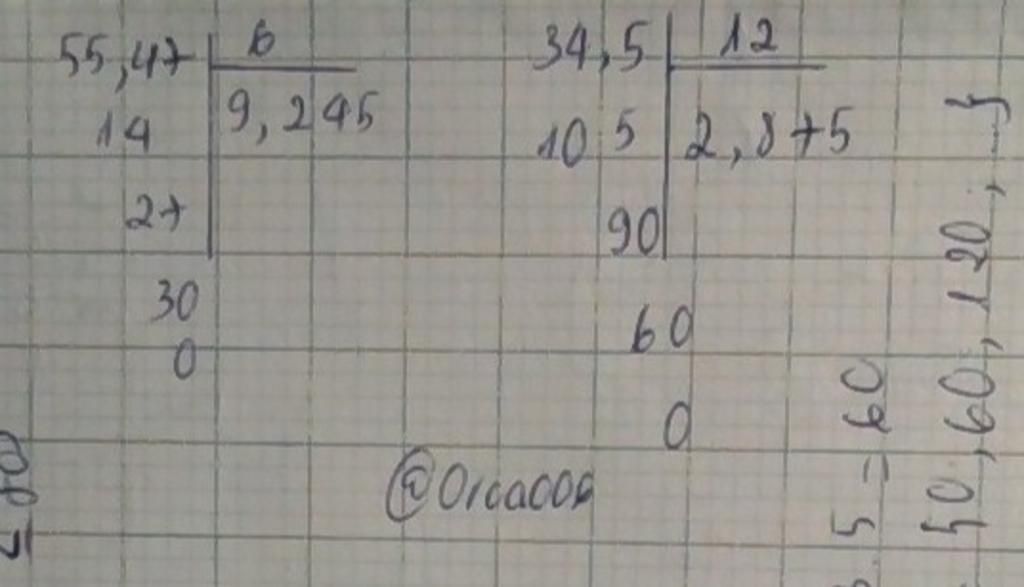 55,47 6
14 9,245
27
30
0
34,5 12
105 2,875
90
60
0
5 = 60
{0, 60, 120, ...}